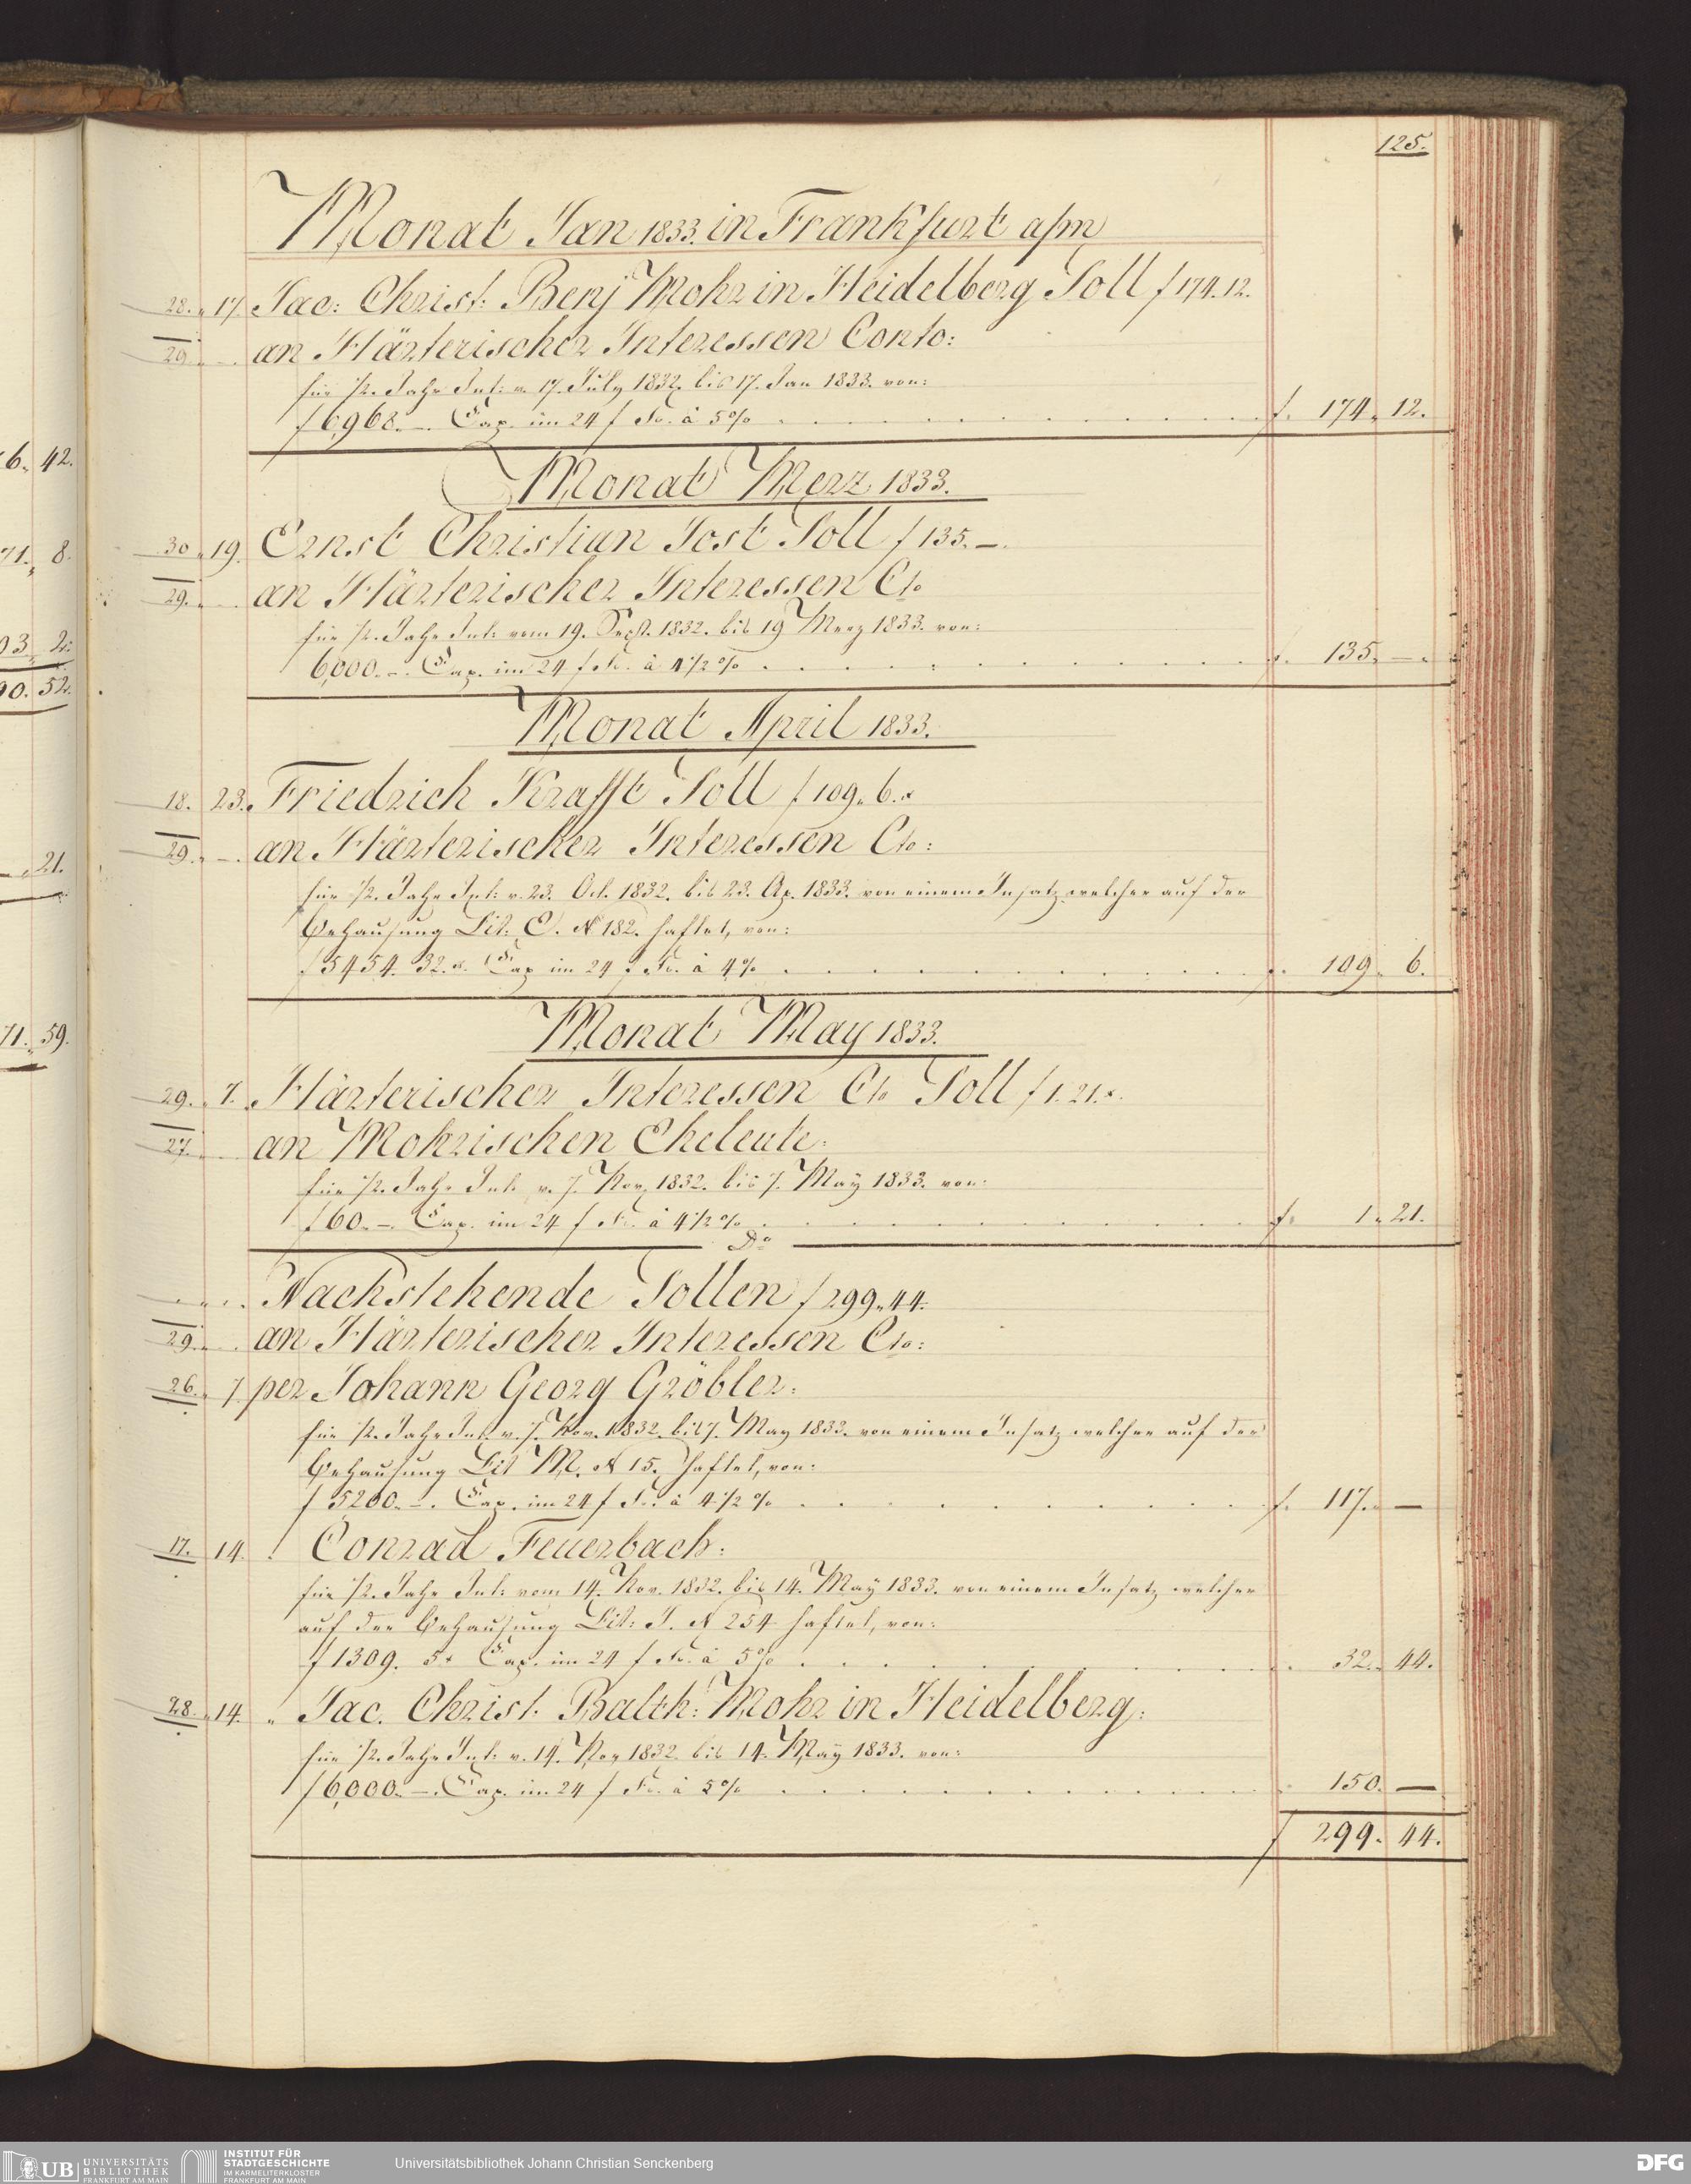 125.
Monat Jan 1833. in Frankfurt a/m
28. 17. Jac: Christ: Benj Mohr in Heidelberg Soll f 174.12.
29. an Härterischer Interessen Conto:
für ½ Jahr Int: v. 17. July 1832. bis 17. Jan 1833. von:
f 6,968. –. Cap. im 24 f Fs. à 5% f. 174. 12.
Monat Merz 1833.
30. 19. Ernst Christian Jost Soll f 135. –.
29. an Härterischer Interessen Cto
für ½ Jahr Int: vom 19. Sept. 1832. bis 19 Merz 1833. von:
6,000. –. Cap. im 24 f Fs. à 4½% f. 135. –.
Monat April 1833.
18. 23. Friedrich Krafft Soll f 109. 6. x
29. an Härterischer Interessen Cto:
für ½ Jahr Int: v. 23. Oct. 1832. bis 23. Ap. 1833. von einem Insatz welcher auf der
Behausung Lit: C. N 182. haftet, von:
f 5454. 32. x. Cap im 24 f Fs. à 4% f. 109. 6.
Monat May 1833.
29. 7. Härterischer Interessen Cto Soll f 1. 21. x.
27. an Mohrischen Eheleute.
für ½ Jahr Int. v. 7. Nov. 1832. bis 7. May 1833. von:
f 60. –. Cap. im 24 f Fs. à 4½% f. 1. 21.
Do
Nachstehende Sollen f 299. 44.
29. an Härterischer Interessen Cto:
26. 7. per Johann Georg Gröbler.
für ½ Jahr Int. v. 7. Nov. 1832. bis 7. May 1833. von einem Insatz welcher auf der
Behausung Lit M. N 15. haftet, von:
f 5200. –. Cap. im 24 f Fs. à 4½% f. 117. –
17. 14. Conrad Feuerbach:
für ½ Jahr Int: vom 14. Nov. 1832. bis 14. May 1833. von einem Insatz welcher
auf der Behausung Lit: J. N 254 haftet, von:
f 1309. 5x Cap. im 24 f Fs. à 5% 32. 44.
28. 14. " Jac. Christ. Balth: Mohr in Heidelberg.
für ½ Jahr Int: v. 14. Nov 1832. bis 14. May 1833. von:
f 6,000. –. Cap. im 24 f Fs. à 5% 150. –
f 299. 44.
6. 42.
71. 8.
03. 2.
90. 52.
21.
71. 59.
UB UNIVERSITÄTS BIBLIOTHEK FRANKFURT AM MAIN
INSTITUT FÜR STADTGESCHICHTE IM KARMELITERKLOSTER FRANKFURT AM MAIN
Universitätsbibliothek Johann Christian Senckenberg
DFG